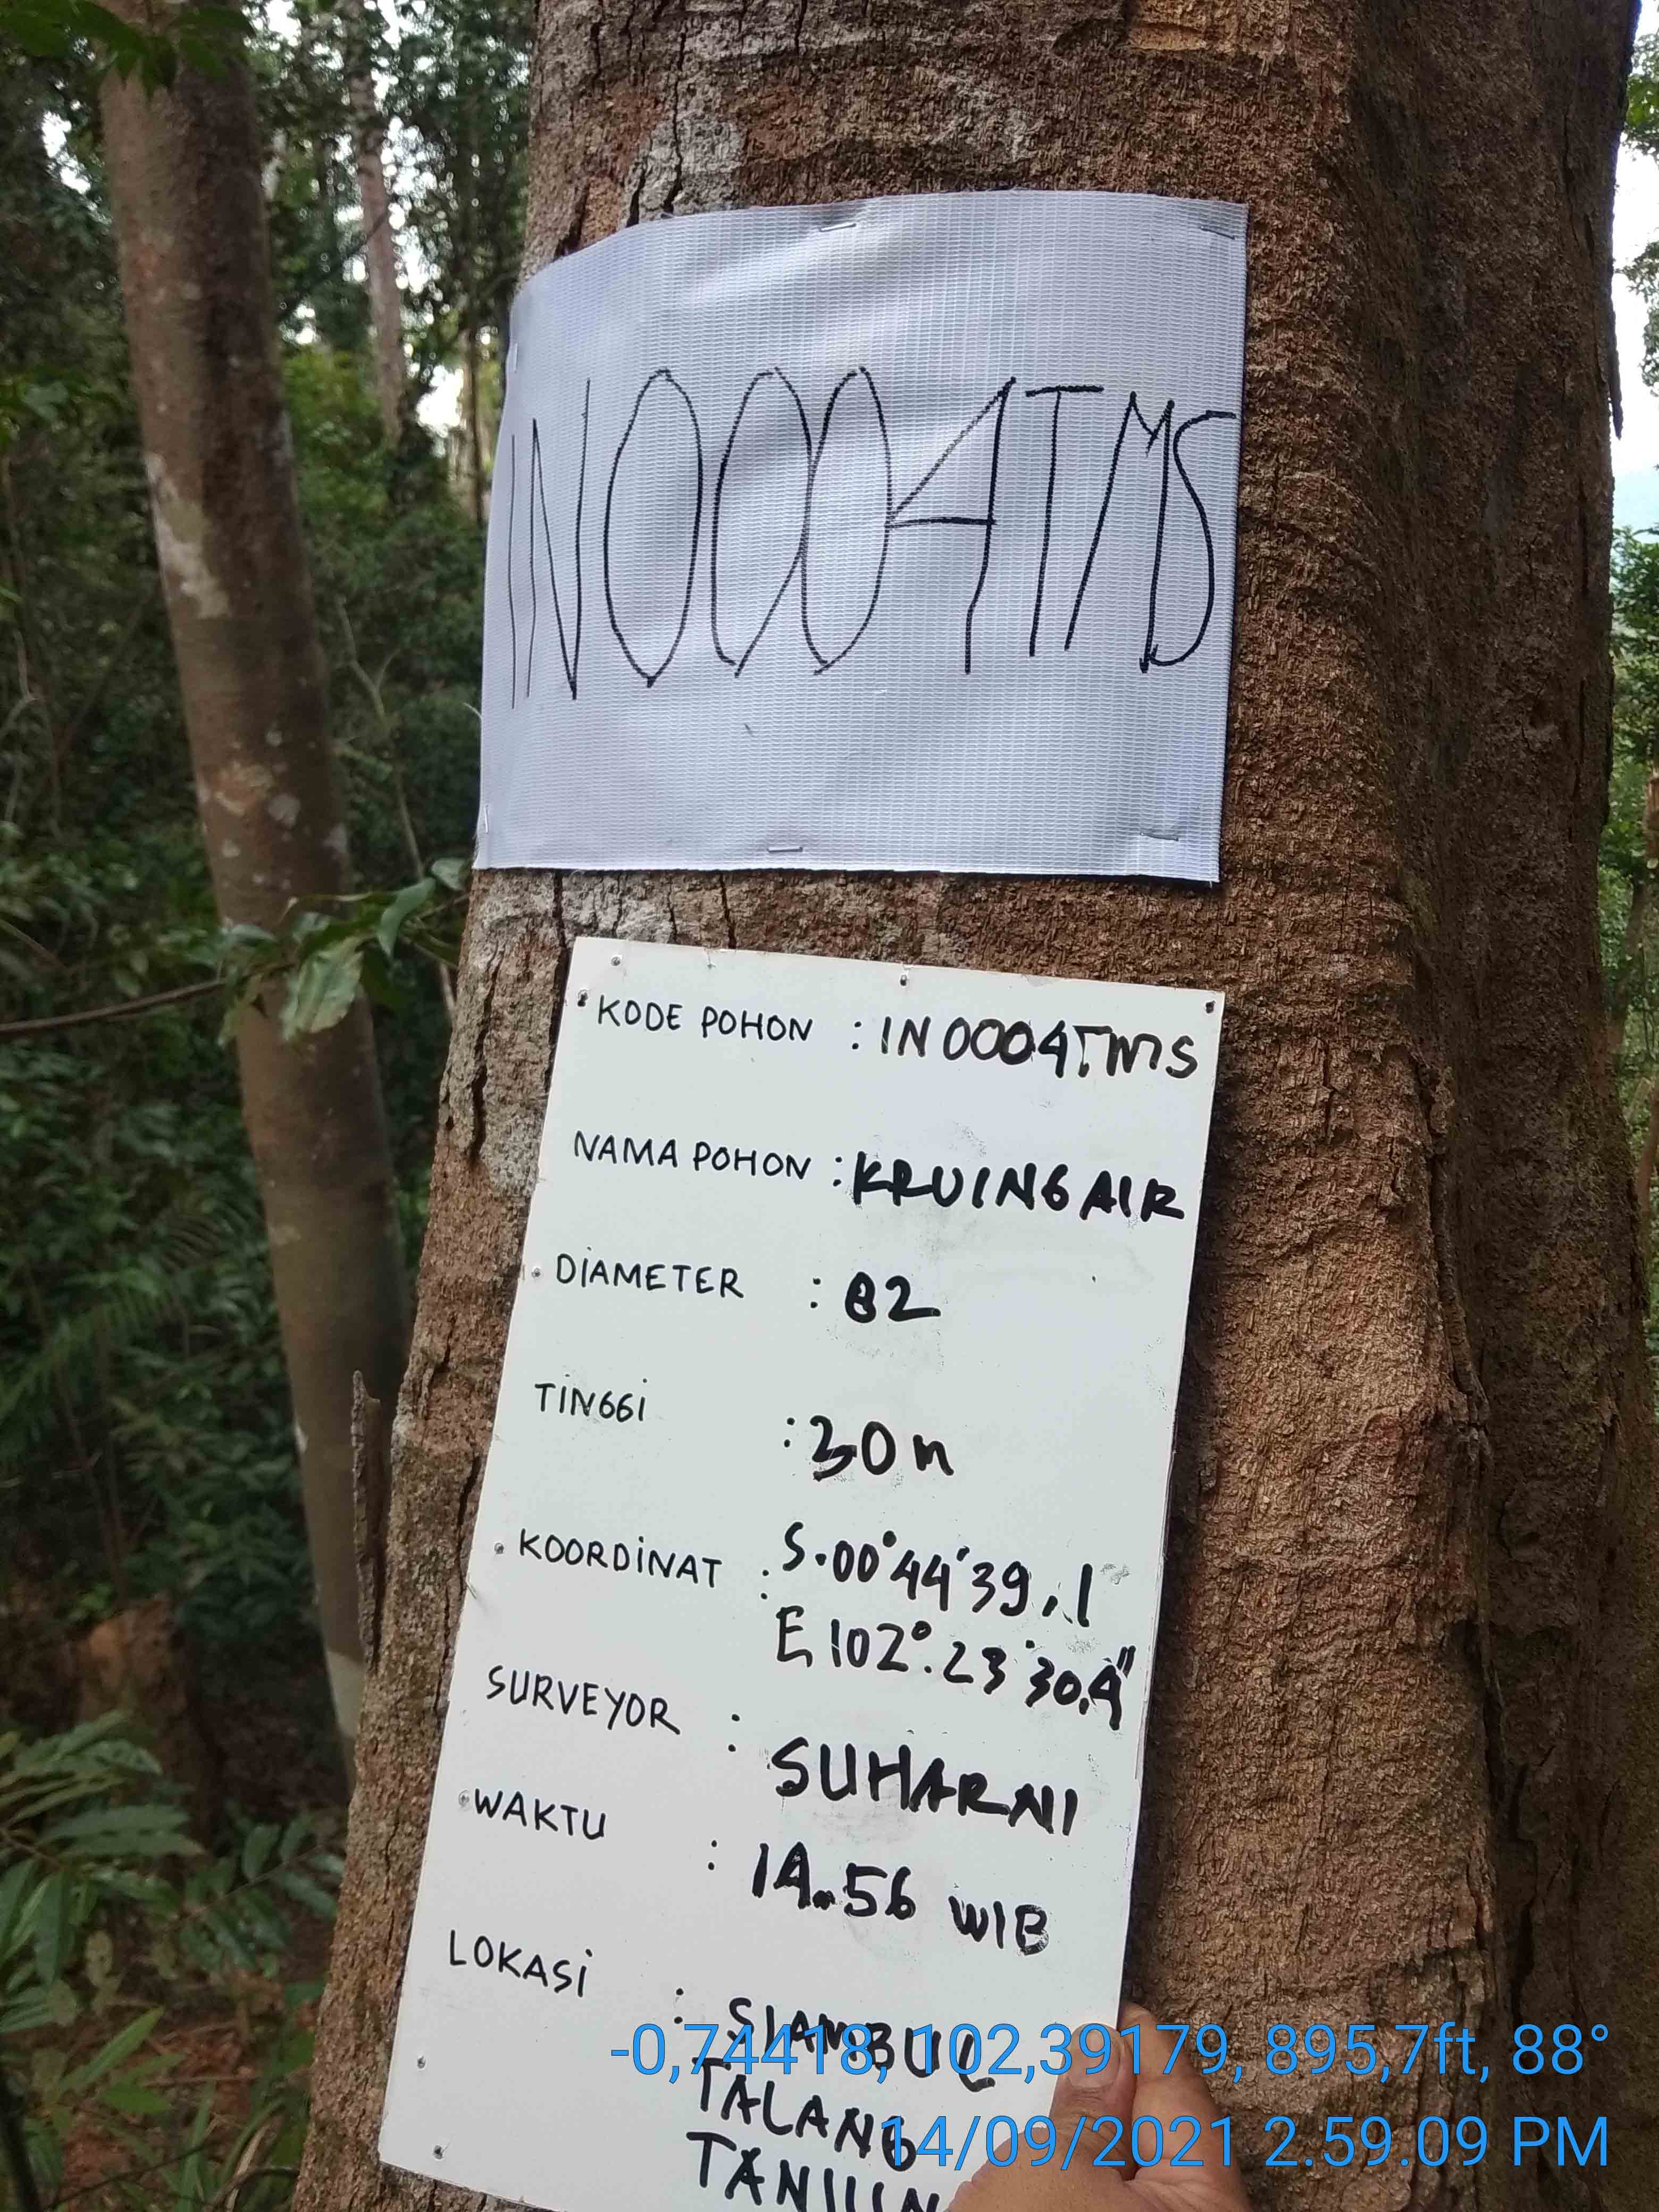 IN0004TMS
KODE POHON : IN0004TMS
NAMA POHON : KRUING AIR
DIAMETER : 82
TINGGI : 30 m
KOORDINAT : S.00°44'39,1"
E 102°.23'30,4"
SURVEYOR : SUHARNI
WAKTU : 14.56 WIB
LOKASI : SIAMBUL
TALANG
-0,74418, 102,39179, 895,7ft, 88°
14/09/2021 2.59.09 PM